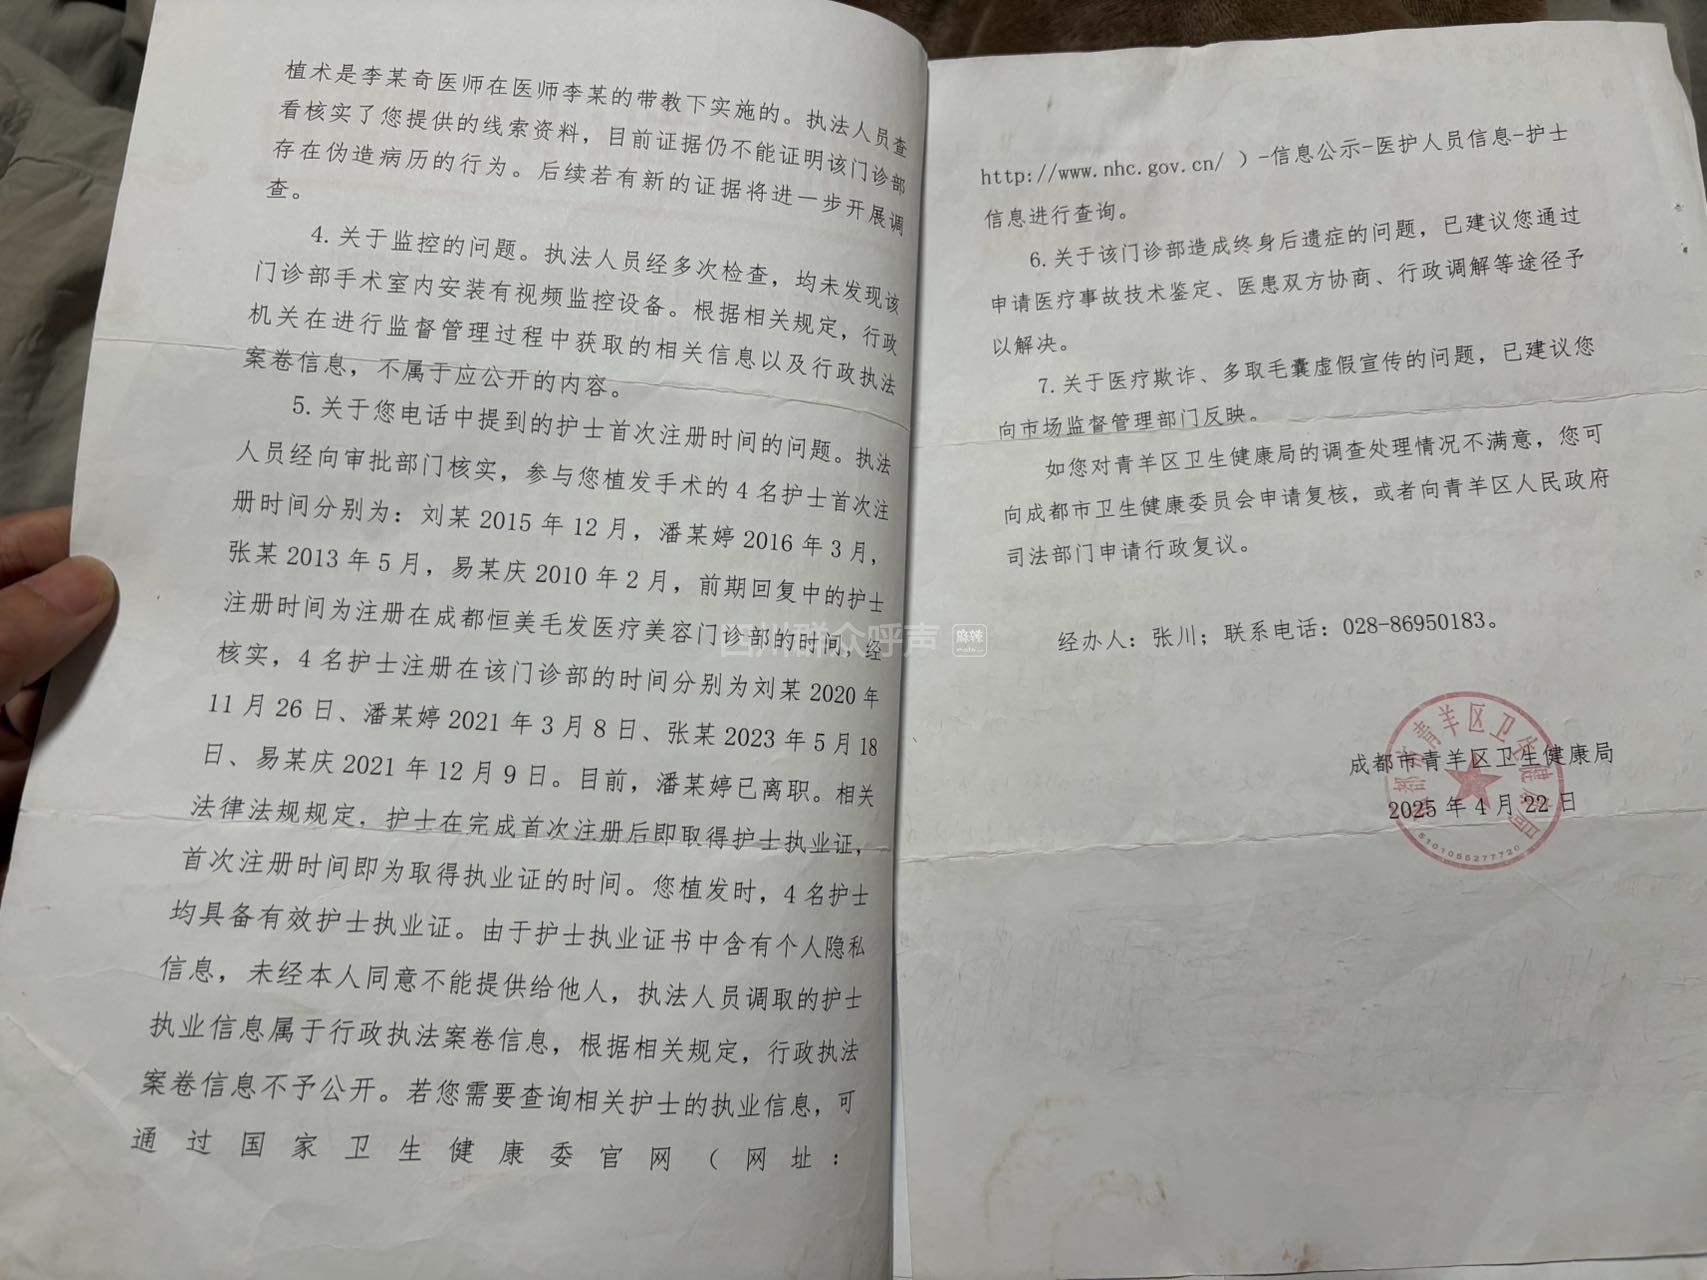 植术是李某奇医师在医师李某的带教下实施的。执法人员查
看核实了您提供的线索资料，目前证据仍不能证明该门诊部
存在伪造病历的行为。后续若有新的证据将进一步开展调
查。
4.关于监控的问题。执法人员经多次检查，均未发现该
门诊部手术室内安装有视频监控设备。根据相关规定，行政
机关在进行监督管理过程中获取的相关信息以及行政执法
案卷信息，不属于应公开的内容。
5.关于您电话中提到的护士首次注册时间的问题。执法
人员经向审批部门核实，参与您植发手术的4名护士首次注
册时间分别为：刘某2015年12月，潘某婷2016年3月，
张某2013年5月，易某庆2010年2月，前期回复中的护士
注册时间为注册在成都恒美毛发医疗美容门诊部的时间，经
核实，4名护士注册在该门诊部的时间分别为刘某2020年
11月26日、潘某婷2021年3月8日、张某2023年5月18
日、易某庆2021年12月9日。目前，潘某婷已离职。相关
法律法规规定，护士在完成首次注册后即取得护士执业证，
首次注册时间即为取得执业证的时间。您植发时，4名护士
均具备有效护士执业证。由于护士执业证书中含有个人隐私
信息，未经本人同意不能提供给他人，执法人员调取的护士
执业信息属于行政执法案卷信息，根据相关规定，行政执法
案卷信息不予公开。若您需要查询相关护士的执业信息，可
通过国家卫生健康委官网（网址：
http://www.nhc.gov.cn/ ）-信息公示-医护人员信息-护士
信息进行查询。
6.关于该门诊部造成终身后遗症的问题，已建议您通过
申请医疗事故技术鉴定、医患双方协商、行政调解等途径予
以解决。
7.关于医疗欺诈、多取毛囊虚假宣传的问题，已建议您
向市场监督管理部门反映。
如您对青羊区卫生健康局的调查处理情况不满意，您可
向成都市卫生健康委员会申请复核，或者向青羊区人民政府
司法部门申请行政复议。
经办人：张川；联系电话：028-86950183。
成都市青羊区卫生健康局
2025年4月22日
成都市青羊区卫生健康局
5101055277720
四川群众呼声
麻辣